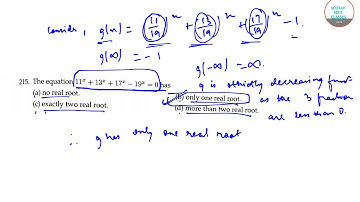 SOURAV SIR'S CLASSES
Consider, g(x) = (11/19)^x + (13/19)^x + (17/19)^x - 1.
g(∞) = -1
g(-∞) = ∞.
215. The equation 11^x + 13^x + 17^x - 19^x = 0 has
(a) no real root.
(b) only one real root.
(c) exactly two real root.
(d) more than two real root.
g is strictly decreasing funct
as the 3 fraction
are less than 0.
∴ g has only one real root